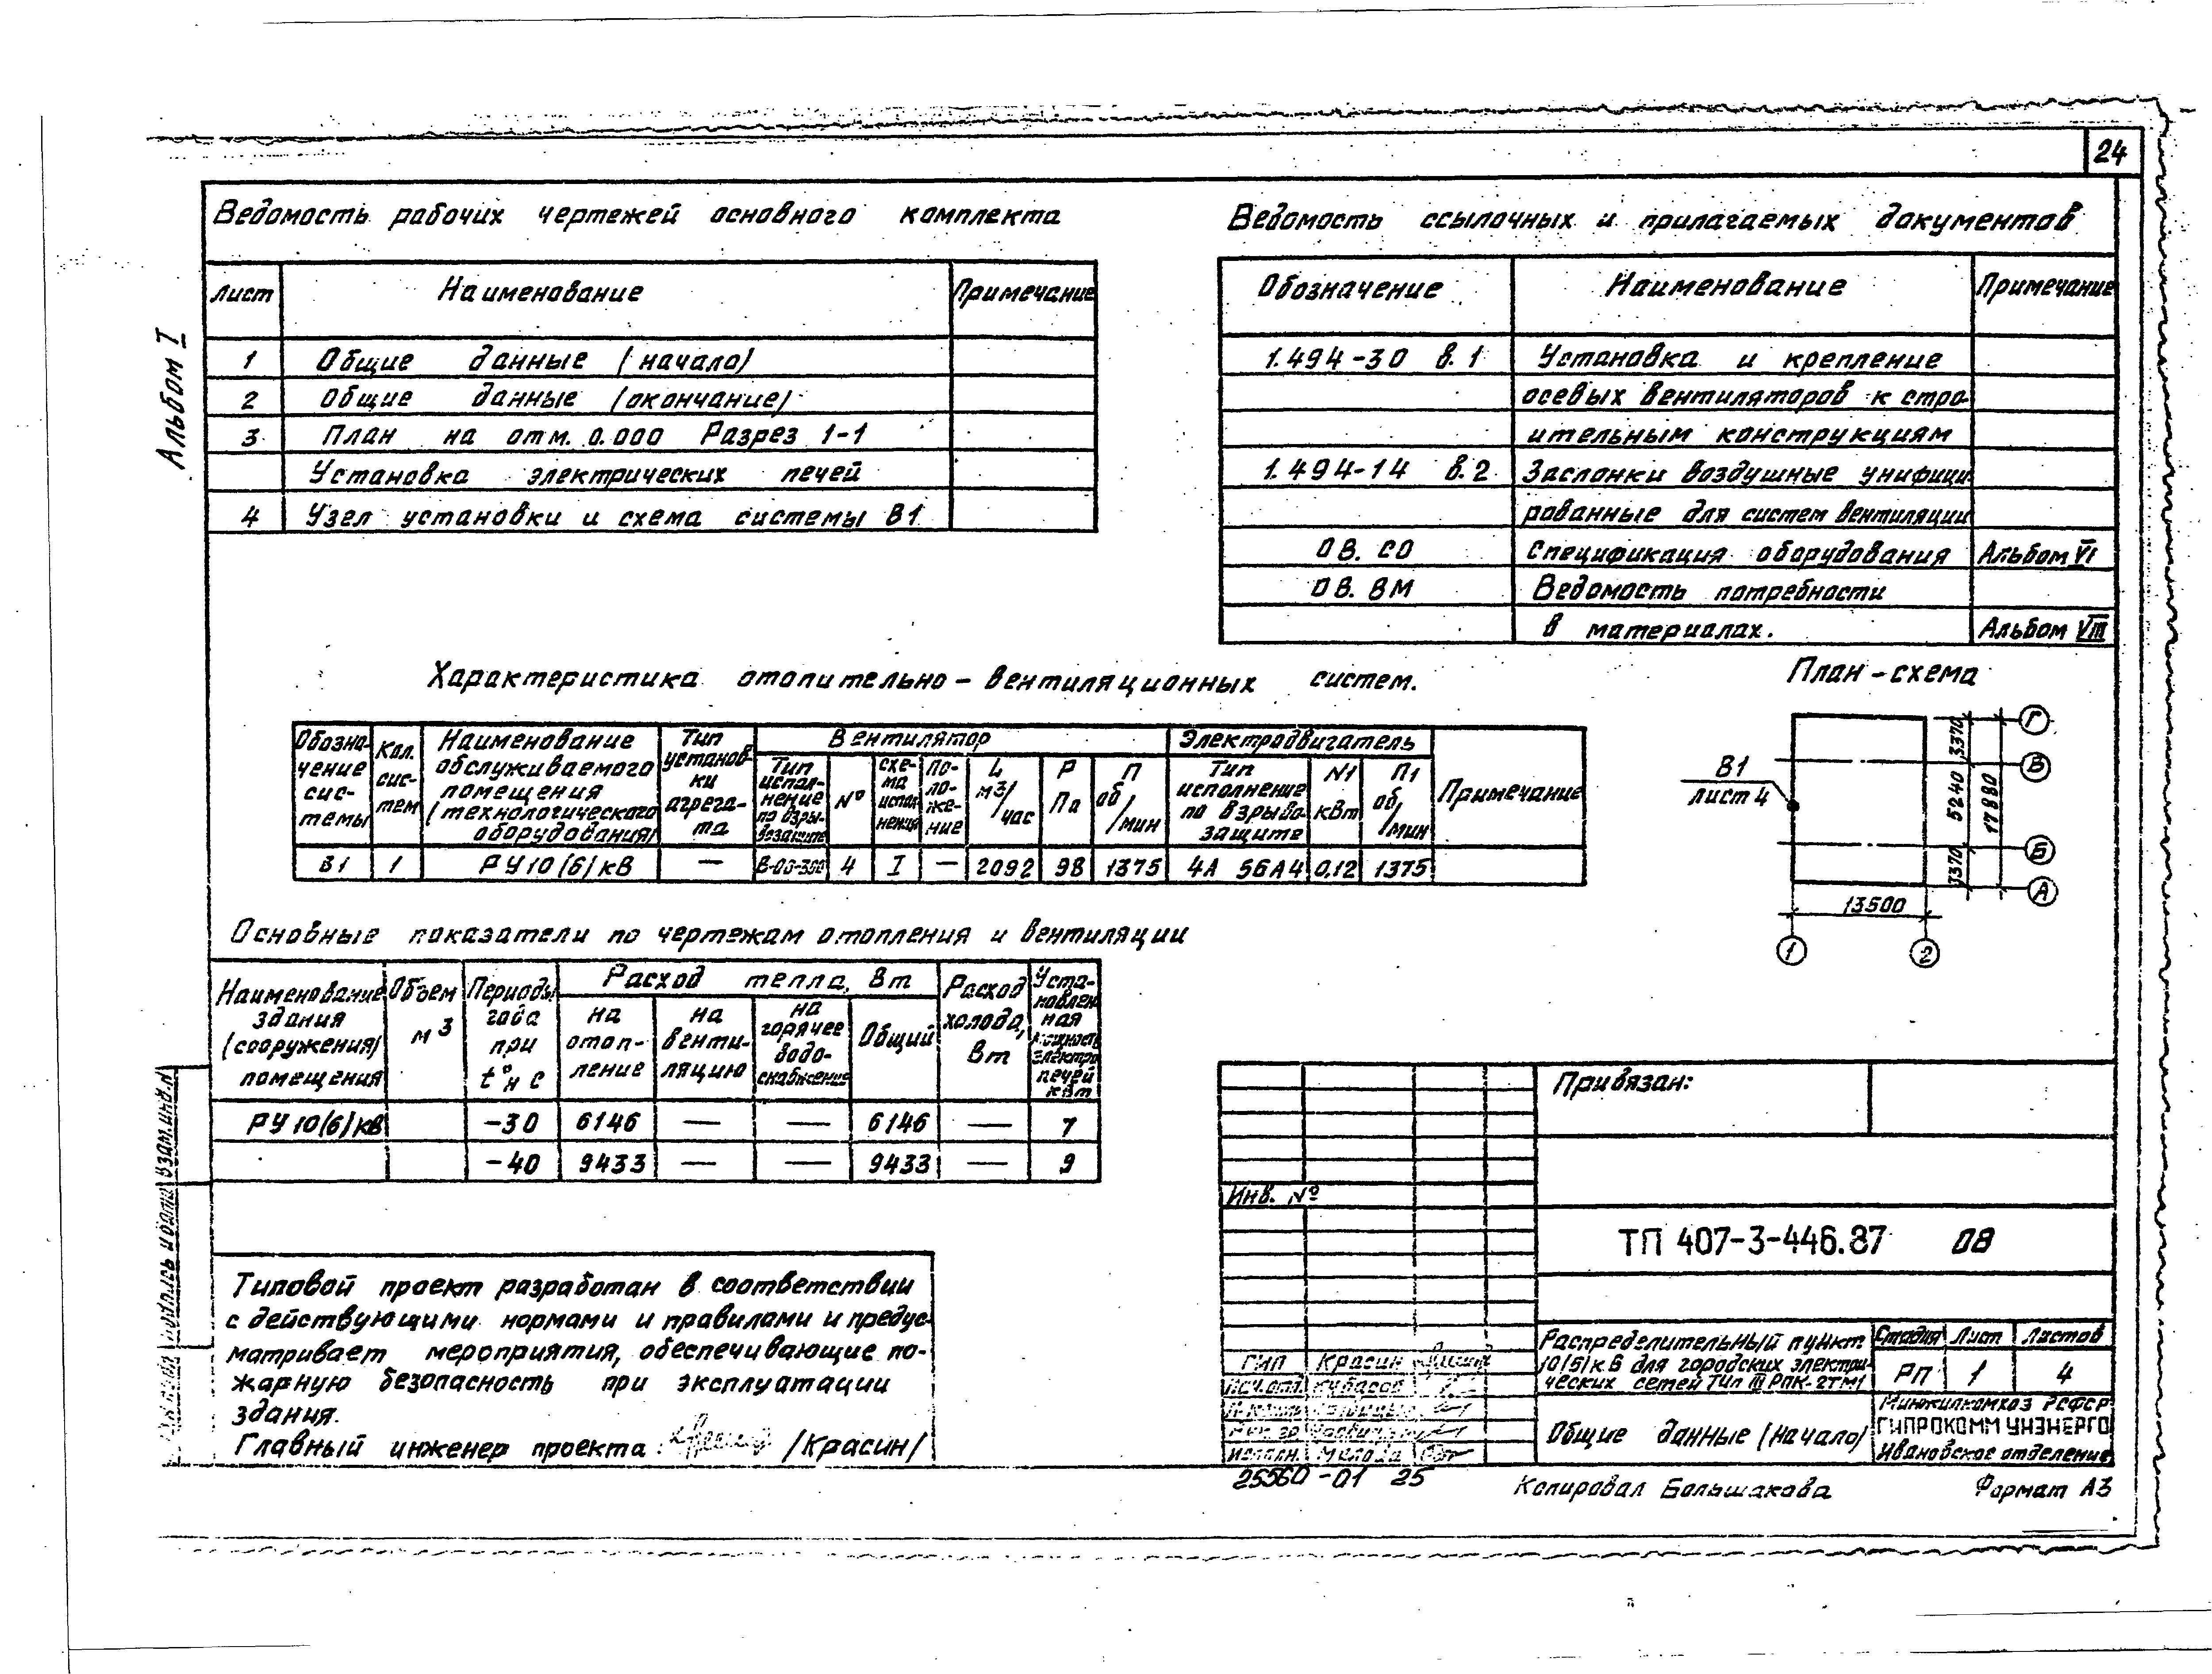 24
Альбом I
Ведомость рабочих чертежей основного комплекта
Лист Наименование Примечание
1 Общие данные (начало)
2 Общие данные (окончание)
3 План на отм. 0.000 Разрез 1-1
Установка электрических печей
4 Узел установки и схема системы В1
Ведомость ссылочных и прилагаемых документов
Обозначение Наименование Примечание
1.494-30 в.1 Установка и крепление
осевых вентиляторов к стро-
ительным конструкциям
1.494-14 в.2 Заслонки воздушные унифици-
рованные для систем вентиляции
ОВ. СО Спецификация оборудования Альбом VI
ОВ. ВМ Ведомость потребности
в материалах. Альбом VIII
Характеристика отопительно-вентиляционных систем.
Обозна-
чение
сис-
темы
Кол.
сис-
тем
Наименование
обслуживаемого
помещения
(технологического
оборудования)
Тип
установ-
ки
агрега-
та
Вентилятор
Тип
испол-
нение
по взры-
возащите
№
схе-
ма
испол-
нения
по-
ло-
же-
ние
L
м3/
час
Р
Па
П
об/
мин
Электродвигатель
Тип
исполнение
по взрыво-
защите
N1
кВт
П1
об/
мин
Примечание
В1 1 РУ 10(6) кВ — В-06-300 4 I — 2092 98 1375 4А 56А4 0,12 1375
План-схема
В1
лист 4
3370
5240
3370
17880
13500
Г
В
Б
А
1 2
Основные показатели по чертежам отопления и вентиляции
Наименование
здания
(сооружения)
помещения
Объем
м3
Периоды
года
при
t°н С
Расход тепла, Вт
на
отоп-
ление
на
венти-
ляцию
на
горячее
водо-
снабжение
Общий
Расход
холода,
Вт
Уста-
новлен-
ная
мощность
электро
печей
кВт
РУ 10(6) кВ -30 6146 — — 6146 — 7
-40 9433 — — 9433 — 9
Типовой проект разработан в соответствии
с действующими нормами и правилами и предус-
матривает мероприятия, обеспечивающие по-
жарную безопасность при эксплуатации
здания.
Главный инженер проекта /Красин/
Подпись и дата Взам.инв.N
Привязан:
Инв. №
ТП 407-3-446.87 ОВ
ГИП Красин
Нач.отд. Кубасов
Исполн.
Распределительный пункт
10(6) кВ для городских электри-
ческих сетей Тип III РПК-2ТМ1
Стадия Лист Листов
РП 1 4
Общие данные (начало)
Минжилкомхоз РСФСР
ГИПРОКОММУНЭНЕРГО
Ивановское отделение
25560-01 25
Копировал Большакова
Формат А3